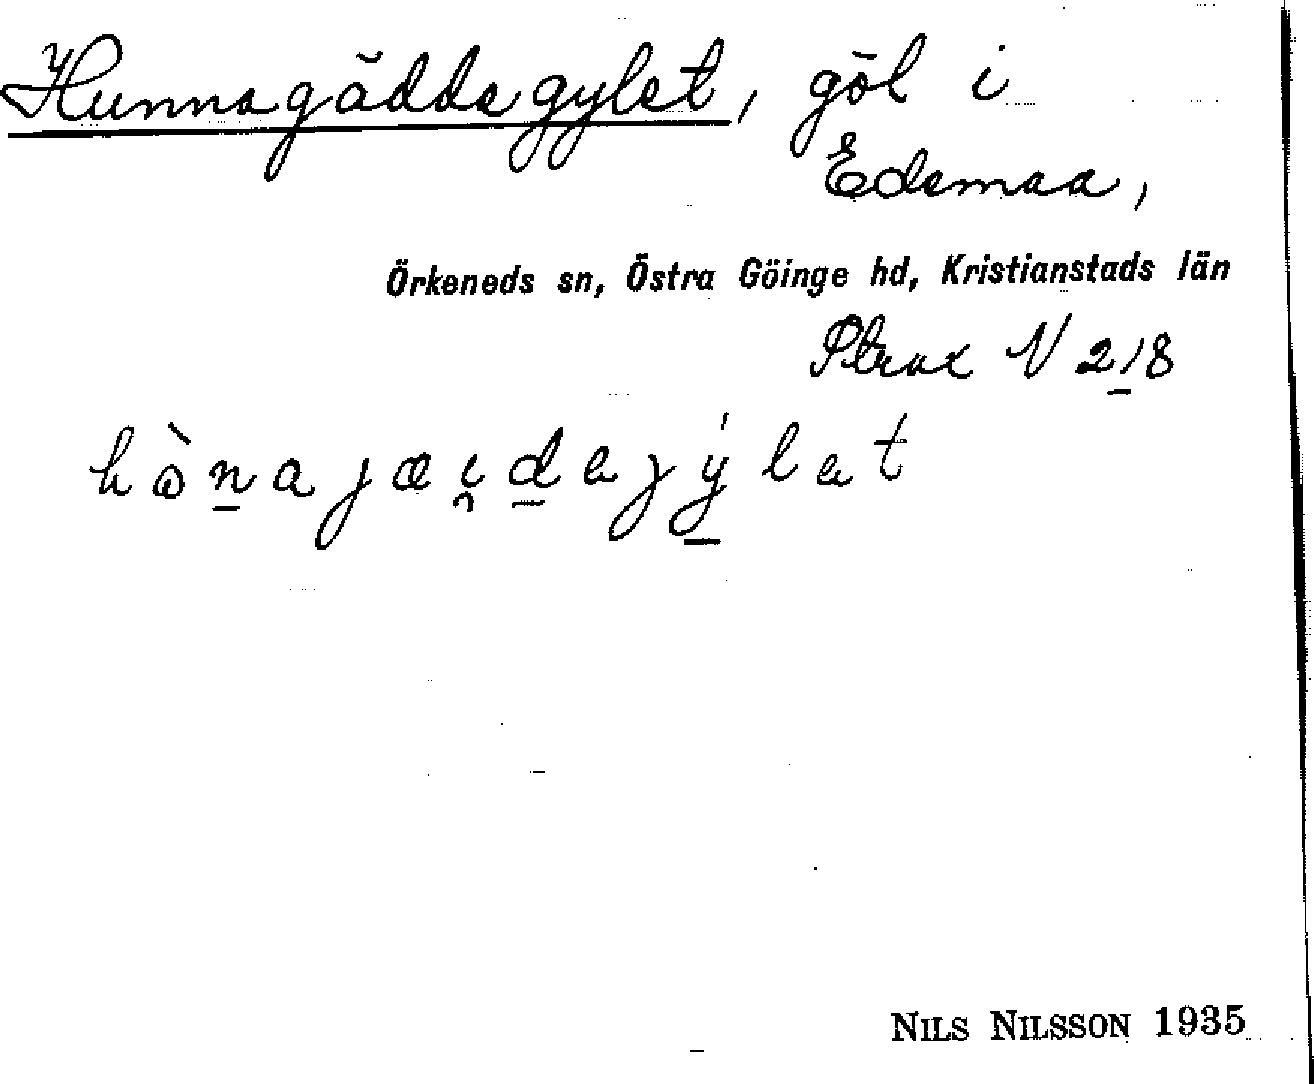 Hunnagäddegylet, göl i
Edemaa,
Örkeneds sn, Östra Göinge hd, Kristianstads län
Strax N 218
NILS NILSSON 1935